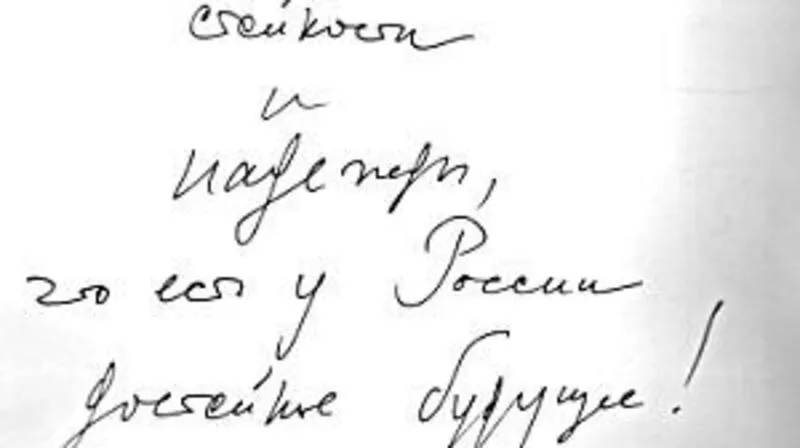 стойкости
и
надежды,
что есть у России
достойное будущее!